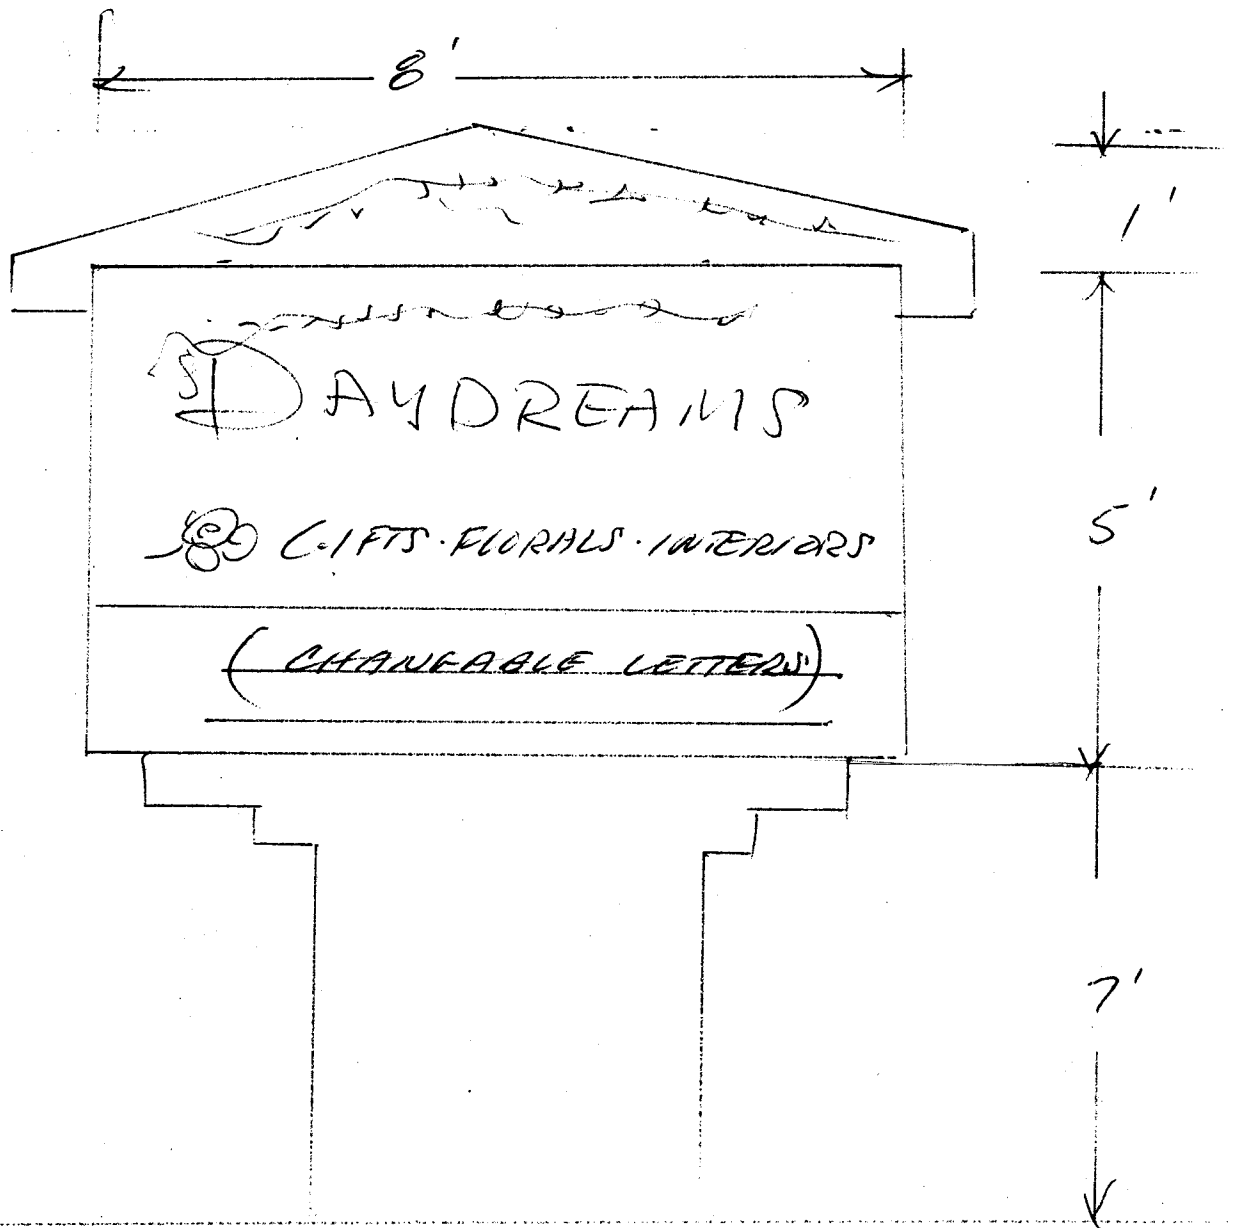 8'
1'
DAYDREAMS
5'
GIFTS · FLORALS · INTERIORS
(CHANGEABLE LETTERS)
7'